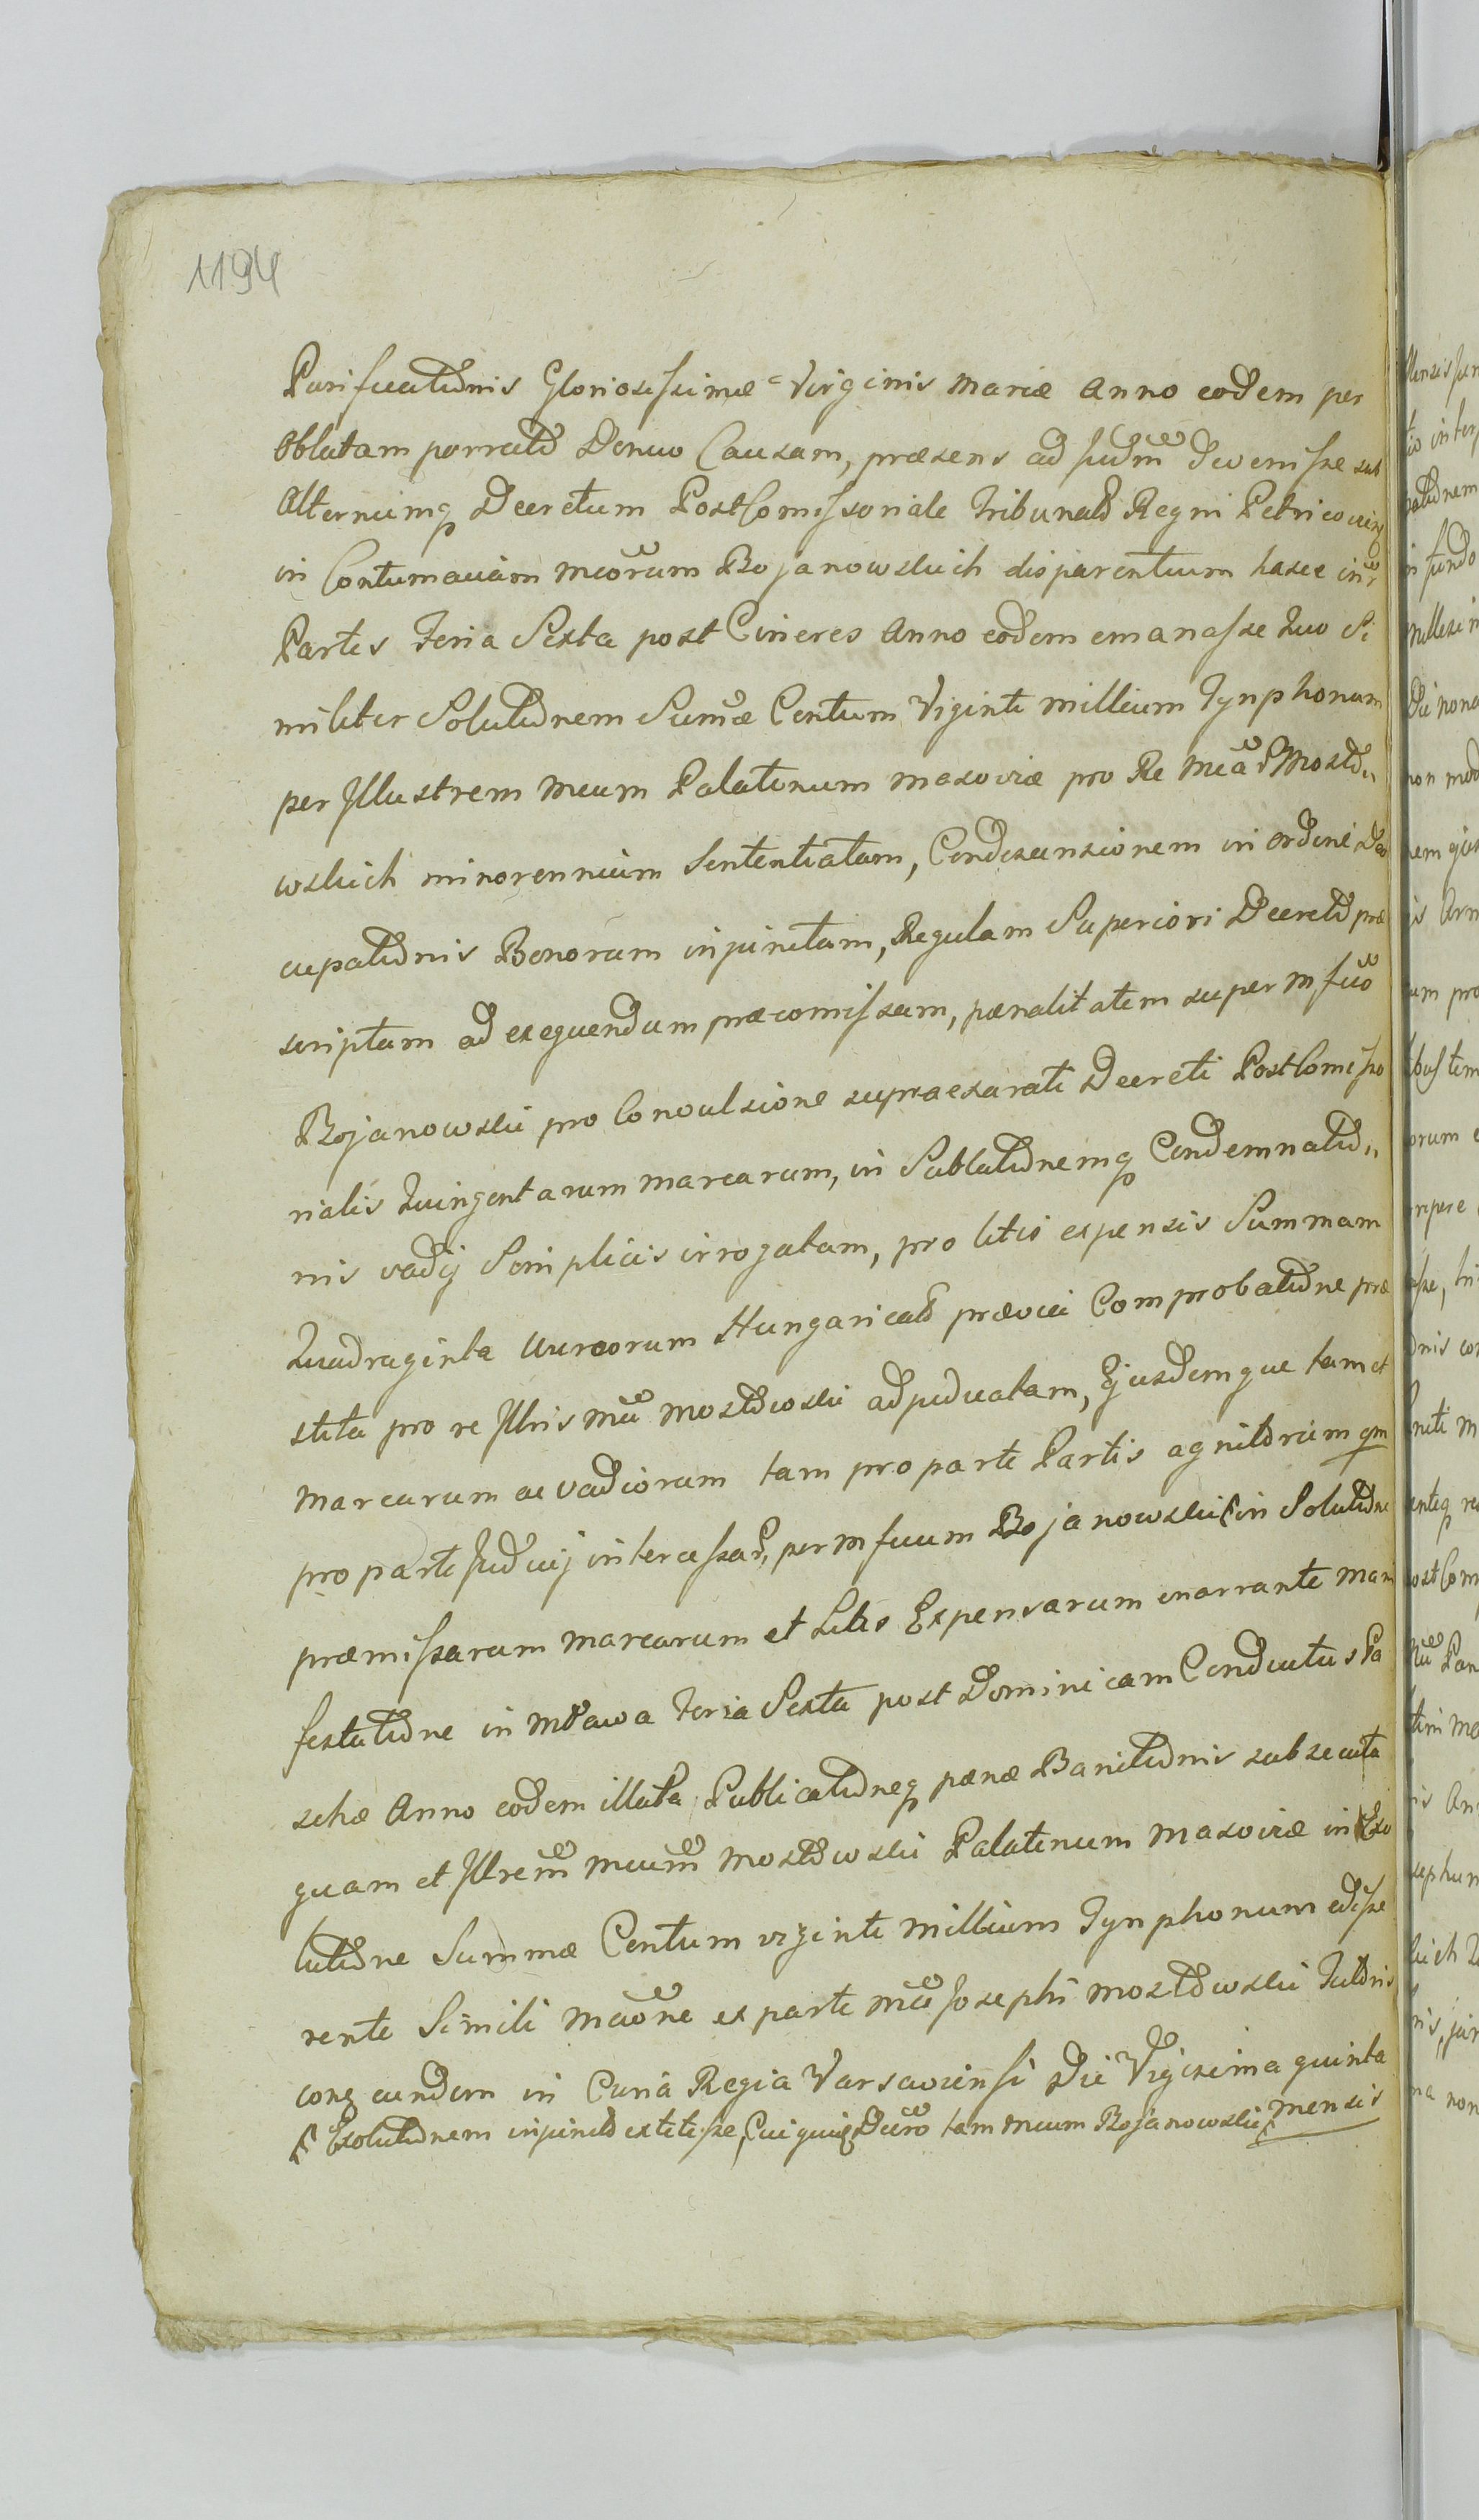 1194
Purificationis Gloriosissimæ Virginis Mariæ Anno eodem per
Oblatam porrectd Denuo Causam, præsens ad Judm̃ devenisse sub
Alternumq Decretum PostComissoriale Tribunald Regni Petricovien
in Contumaciam Mcorum Bojanowskich disparentium hasce int̃r
Partes Feria Sexta post Cineres Anno eodem emanasse Quo Si
militer Solutionem Sum̃æ Centum Viginti millium Tynphonum
per Jllustrem Mcum Palatinum Masoviæ pro Re Mcar̃ Mosto„
wskich minorennium Sententiatam, Condescensionem in ordine Deo
cupationis Bonorum injunctam, Regulam Superiori Decreto præ
scriptam ad exequendum præcomissam, pænalitatem super Mfco
Bojanowski pro Convulsione supraexarati Decreti PostComisso
rialis Quingentarum marcarum, in Sublationemq Condemnatio„
nis vadij Simplicis irrogatam, pro litis expensis Summam
Quadraginta Aureorum Hungaricald prævia Comprobatione præ
stita pro re Jllris Mci Mostowski adjudicatam, Ejusdemque tam et
Marcarum ac vadiorum tam pro parte Partis agnitorum qm
pro parte Judicij intercessar̃, per Mficum Bojanowski in Solutione
præmissarum marcarum et Litis Expensarum enarrante mani
festatione in Mława Feria Sexta post Dominicam Conductus Pa
schæ Anno eodem illata, Publicationeq pænæ Banitionis subsecuta
quam et Jllrem̃ Mcum̃ Mostowski Palatinum Masoviæ in Exo
lutione Summæ Centum viginti millium Tynphonum edisse
rente Simili Mãone ex parte Mci Josephi Mostowski Tutoris
cong eundem in Curia Regia Varsaviensi Die Vigesima quinta
Exolutionem injunctd extitisse, Cui quiq Dec̃ro tam Mcum Bojanowski
mensis